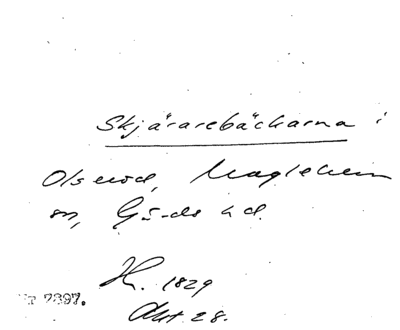 Skjärarebäckarna i
Olseröd, Maglehem
sn, Gärds hd.
H. 1829
Akt 28.
Nr 7397.